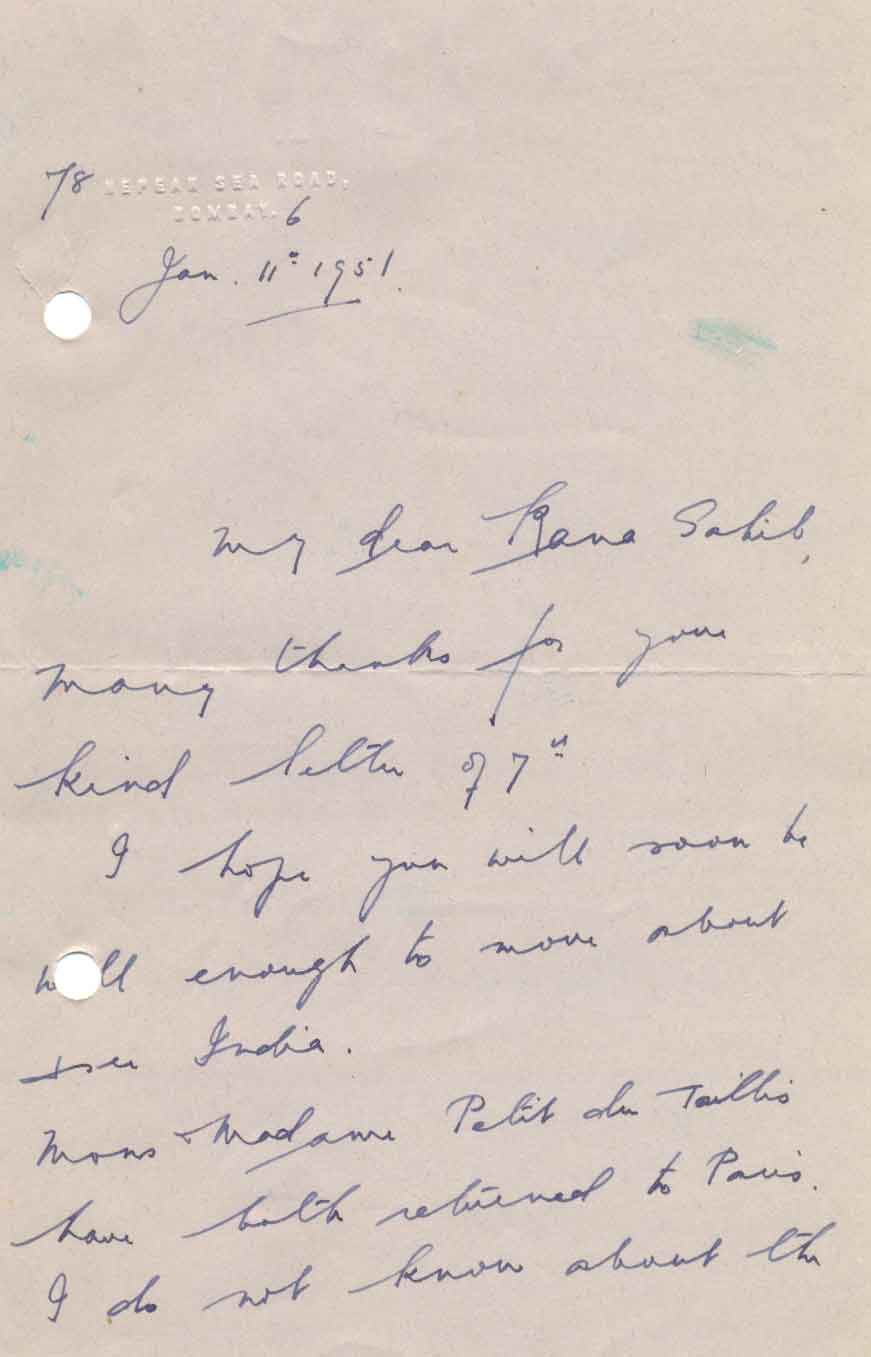 78 NEPEAN SEA ROAD,
BOMBAY. 6
Jan. 11th 1951.
My dear Rana Sahib,
Many thanks for your
kind letter of 7th
I hope you will soon be
well enough to move about
& see India.
Mons & Madame Petit du Taillis
have both returned to Paris.
I do not know about the